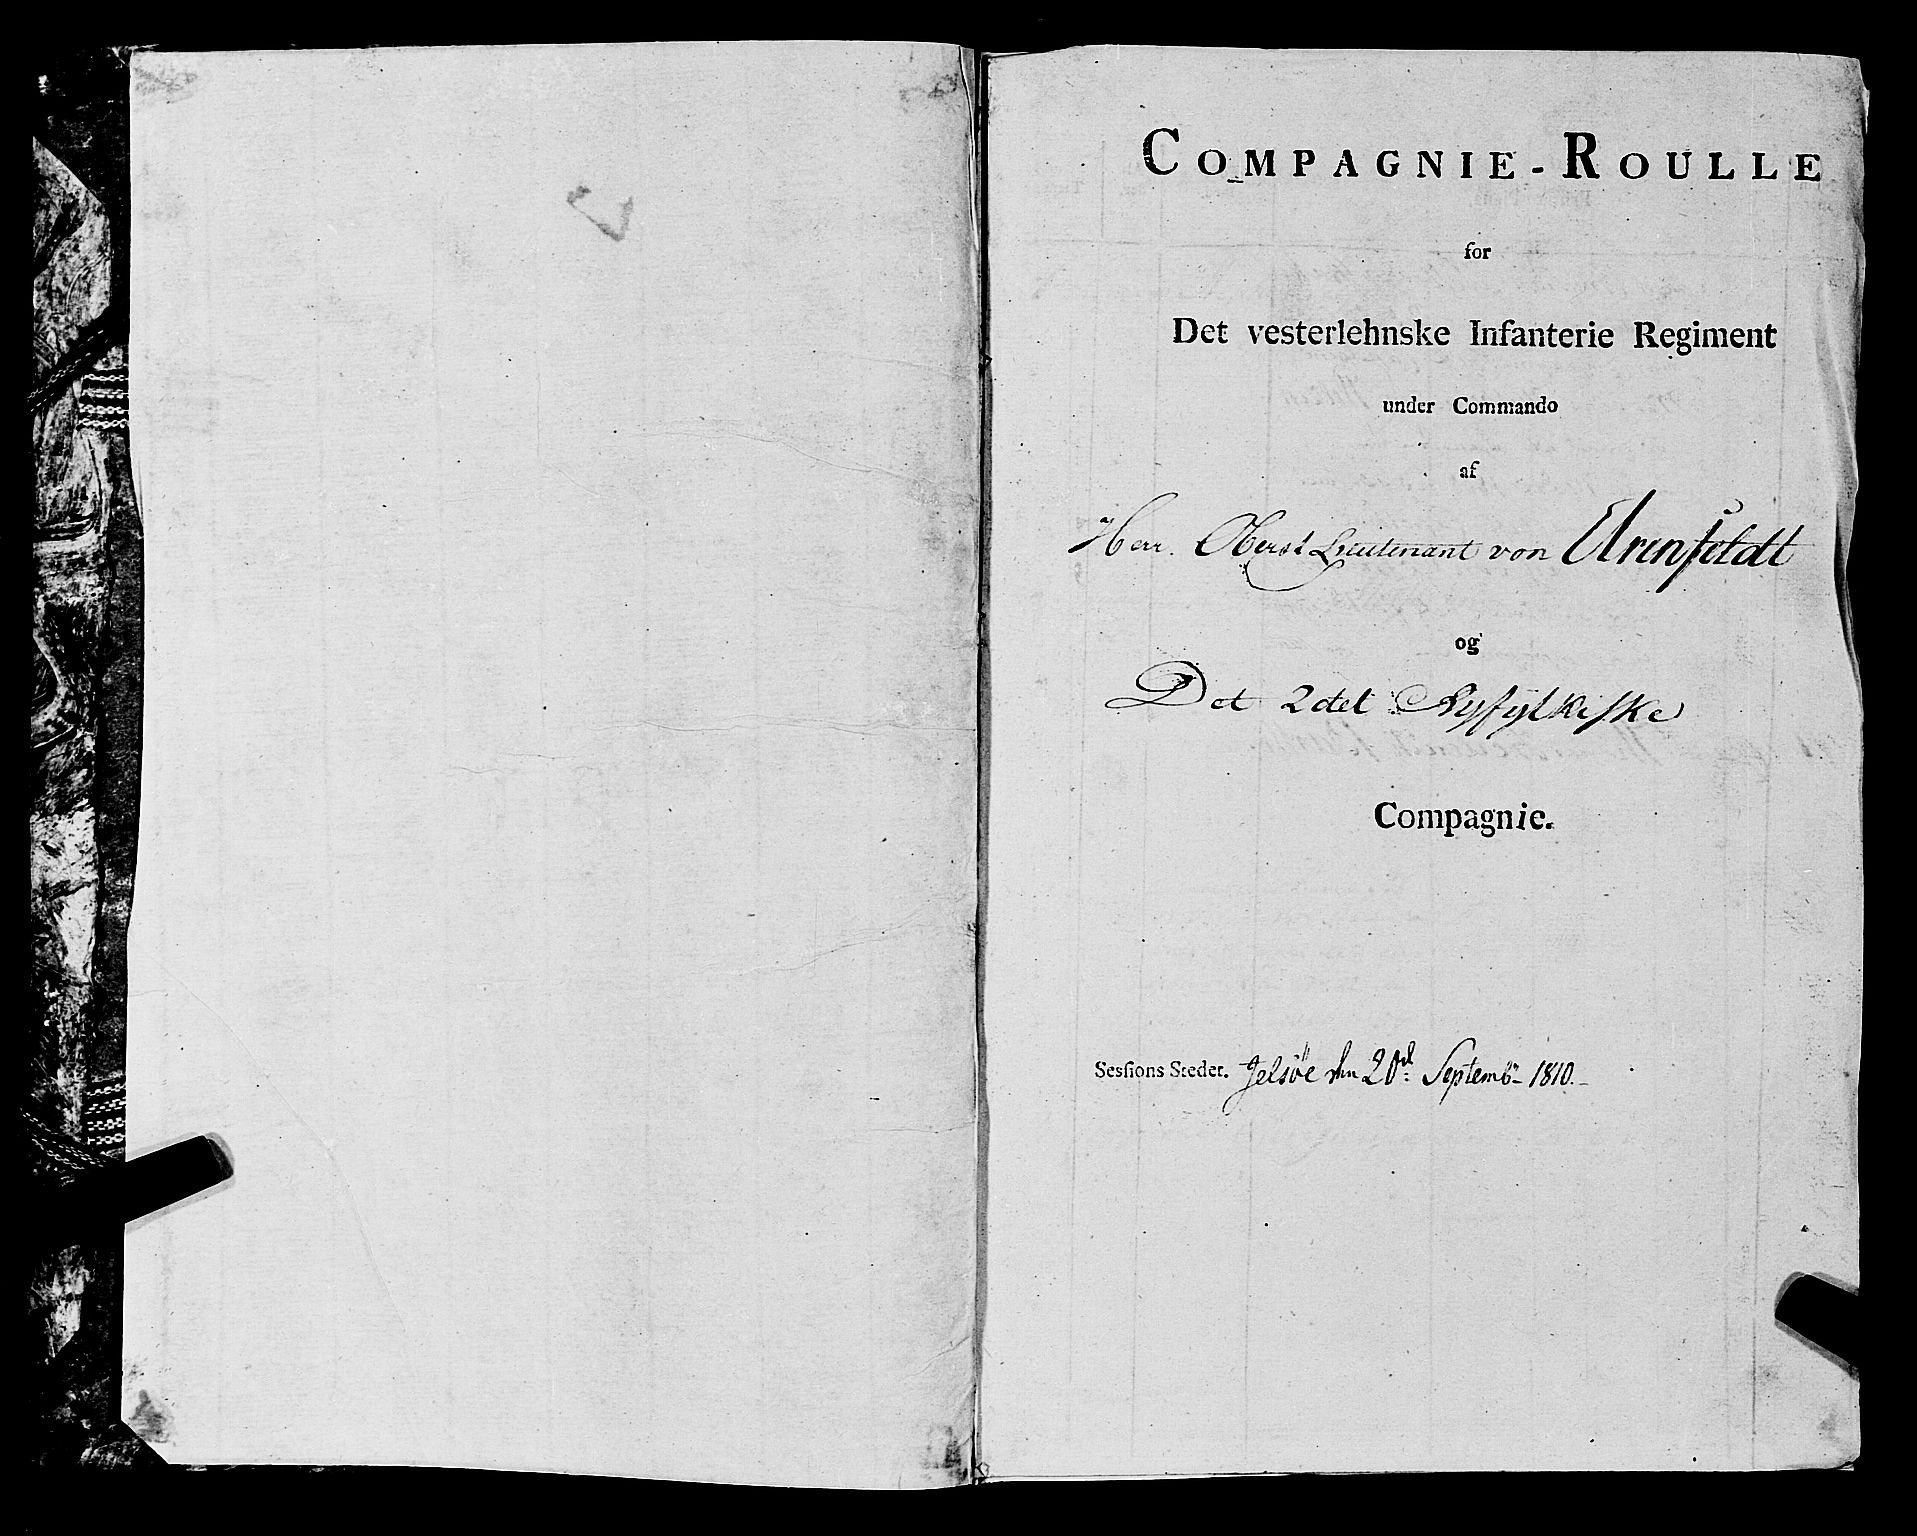 COMPAGNIE-ROULLE
for
Det vesterlehnske Infanterie Regiment
under Commando
af
Herr. Oberst Lieutenant von Arenfeldt
og
Det 2det Ryfylkiske
Compagnie.
Sessions Stedet. Jelsöe den 20d: Septembr 1810.